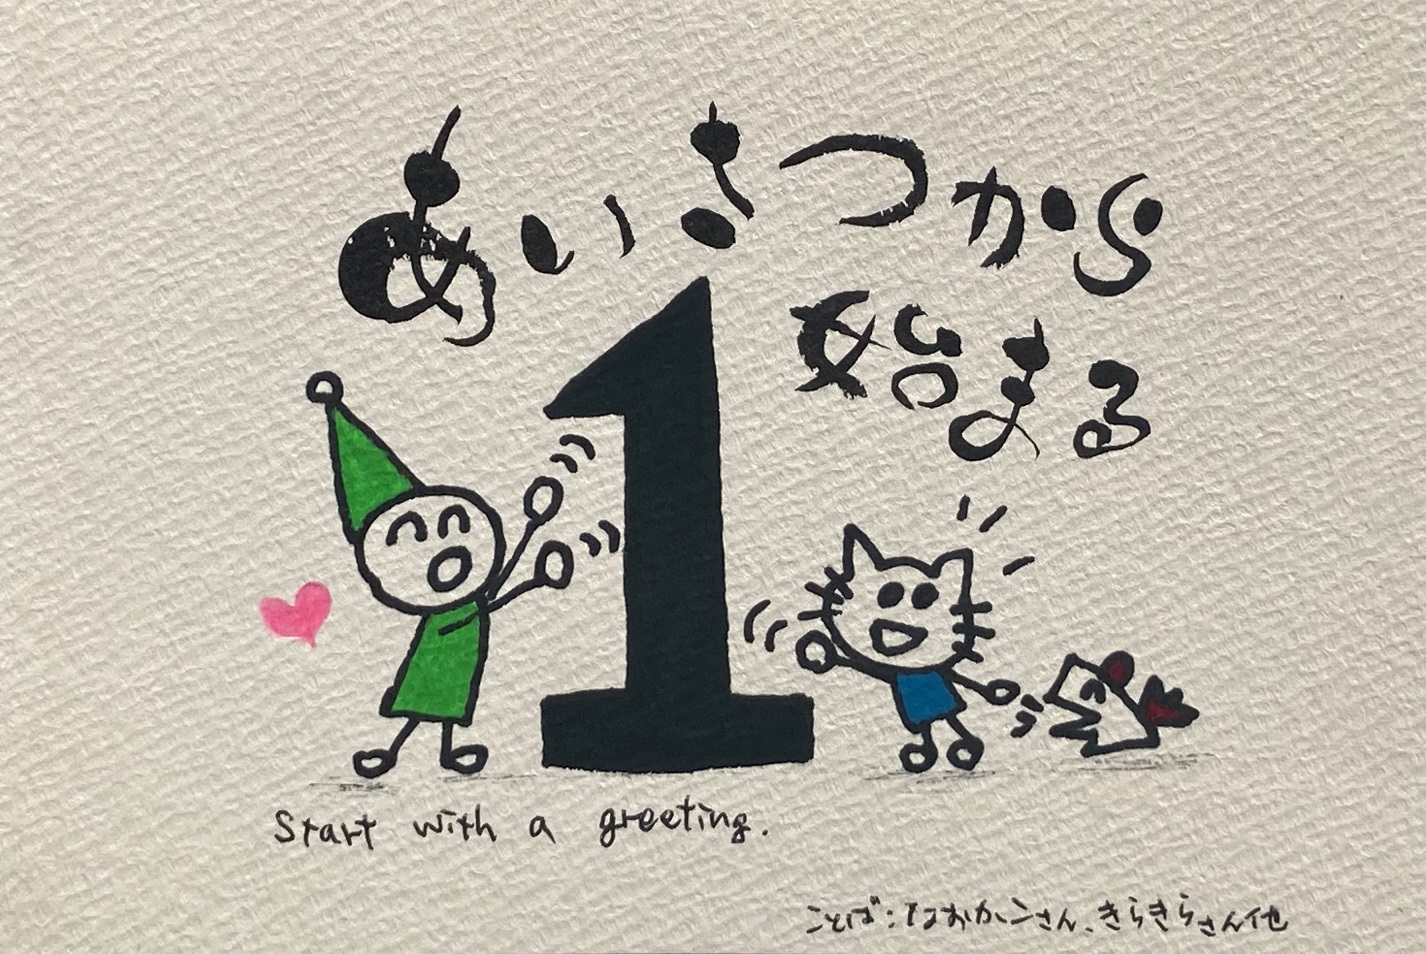 あいさつから
始まる
1
Start with a greeting.
ことば:なおかこさん、きらきらさん他